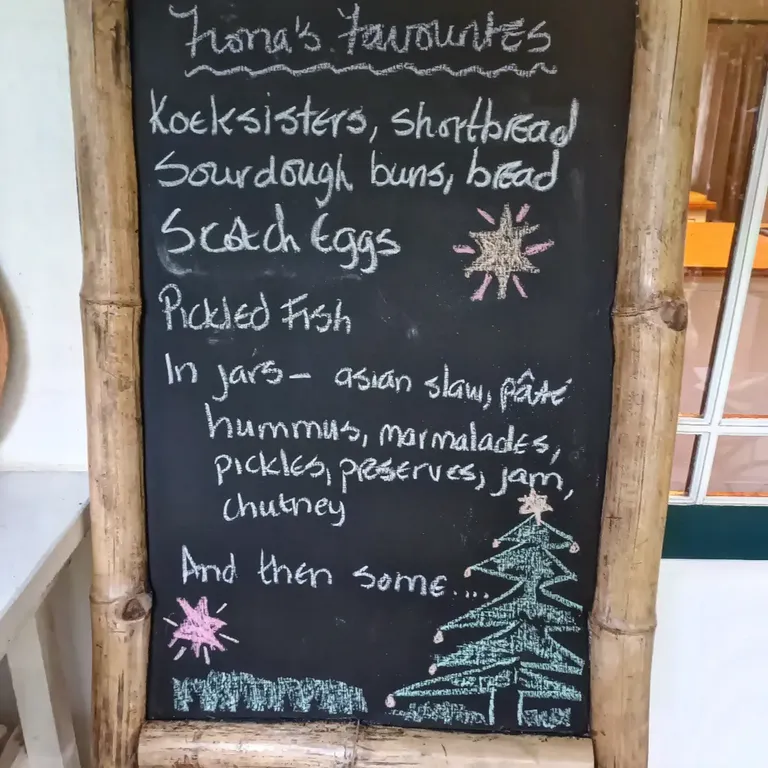 Fiona's Favourites
Koeksisters, shortbread
Sourdough buns, bread
Scotch Eggs
Pickled Fish
In jars - asian slaw, pâté
hummus, marmalades,
pickles, preserves, jam,
chutney
And then some....